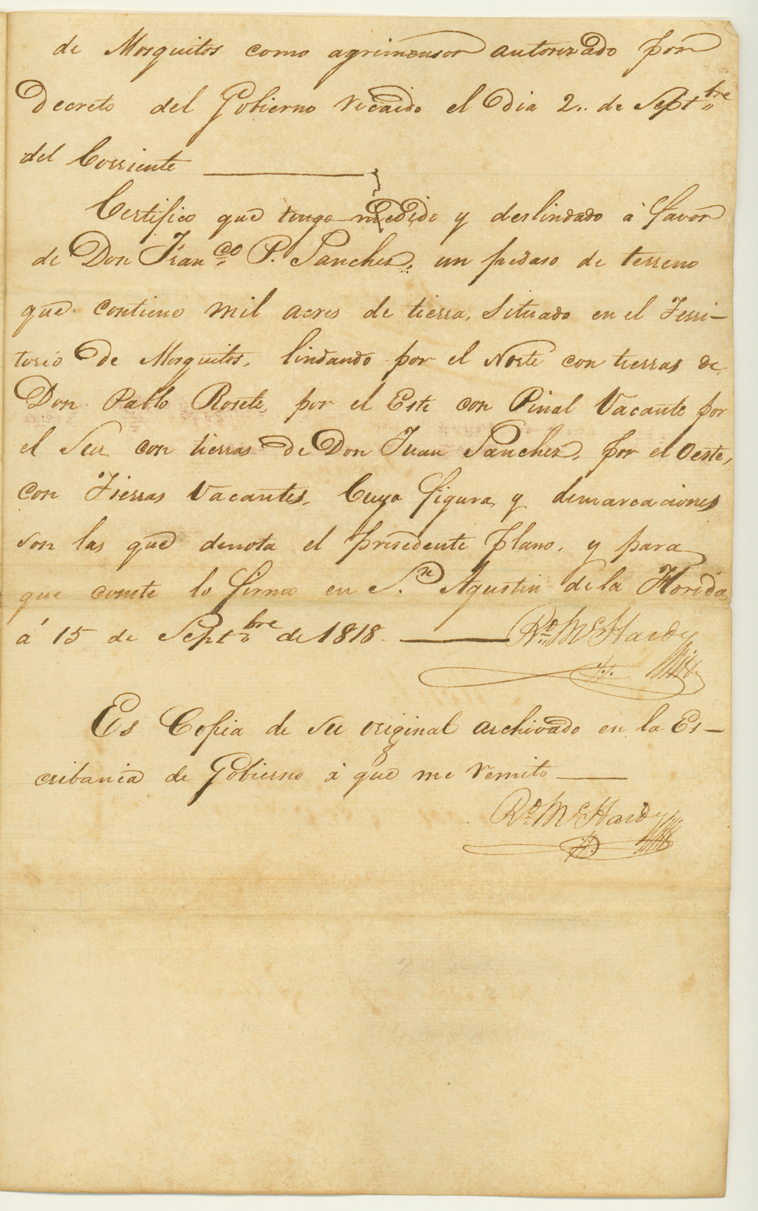 de Mosquitos como agrimensor autorizado por
Decreto del Gobierno recaido el dia 2.. de Septbre
del Corriente
Certifico que tengo medido y deslindado à favor
de Don Franco. P. Sanchez, un pedaso de terreno
que contiene mil acres de tierra, situado en el Terri-
torio de Mosquitos, lindando por el Norte con tierras de
Don Pablo Rosete, por el Este con Pinal Vacante por
el Sur con tierras de Don Juan Sanchez, por el Oeste,
con Tierras Vacantes, Cuya figura y demarcaciones
son las que denota el presedente Plano, y para
que conste lo firmo en Sn. Agustin de la Florida
á 15 de Septbre de 1818. Rto. McHardy
Es Copia de su original archivado en la Es-
cribania de Gobierno à que me remito
Rto. McHardy